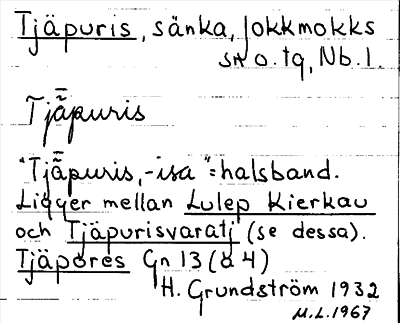 Tjäpuris, sänka, Jokkmokks
sn o. tg, Nb. l.
Tjǟpuris
"Tjǟpuris, -isa" = halsband.
Ligger mellan Lulep Kierkau
och Tjäpurisvaratj (se dessa).
Tjäpores Gn 13 (a 4)
H. Grundström 1932
M.L. 1967